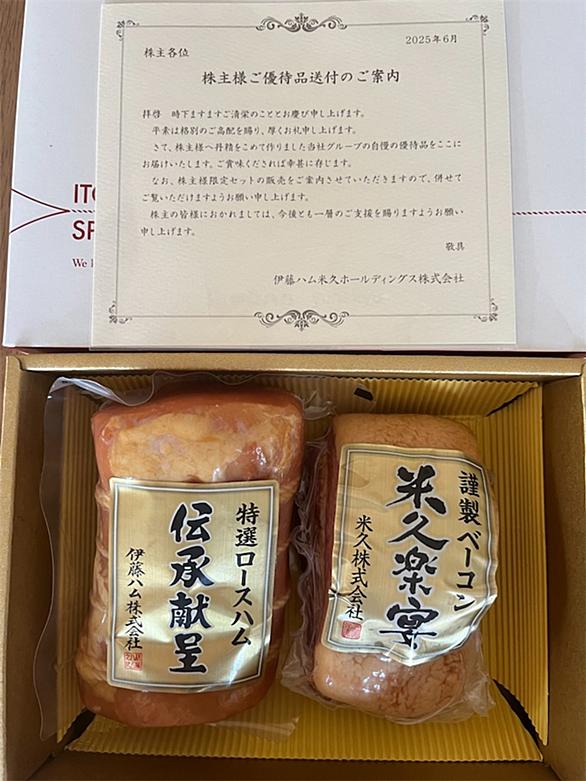 2025年6月
株主各位
株主様ご優待品送付のご案内
拝啓 時下ますますご清栄のこととお慶び申し上げます。
平素は格別のご高配を賜り、厚くお礼申し上げます。
さて、株主様へ丹精をこめて作りました当社グループの自慢の優待品をここに
お届けいたします。ご賞味くだされば幸甚に存じます。
なお、株主様限定セットの販売をご案内させていただきますので、併せて
ご覧いただけますようお願い申し上げます。
株主の皆様におかれましては、今後とも一層のご支援を賜りますようお願い
申し上げます。
敬具
伊藤ハム米久ホールディングス株式会社
ITO
SP
We
特選ロースハム
伝承献呈
伊藤ハム株式会社
謹製ベーコン
米久楽宴
米久株式会社